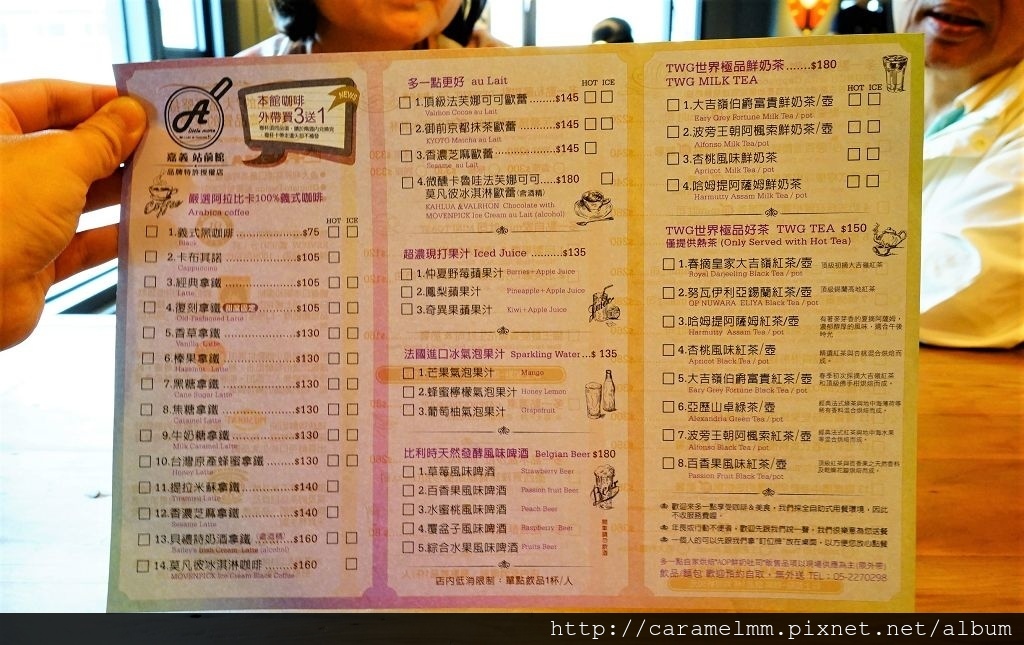 A
a little more
嘉義 站前館
品牌特許授權店
本館咖啡
外帶買3送1
NEWS
Coffee
嚴選阿拉比卡100%義式咖啡
Arabica coffee
HOT ICE
1.義式黑咖啡 $75
Black
2.卡布其諾 $105
Cappuccino
3.經典拿鐵 $105
Latte
4.復刻拿鐵 $105
Old-Fashioned Latte
5.香草拿鐵 $130
Vanilla Latte
6.榛果拿鐵 $130
Hazelnut Latte
7.黑糖拿鐵 $130
Cane Sugar Latte
8.焦糖拿鐵 $130
Caramel Latte
9.牛奶糖拿鐵 $130
Milk Caramel Latte
10.台灣原產蜂蜜拿鐵 $130
Honey Latte
11.提拉米蘇拿鐵 $140
Tiramisu Latte
12.香濃芝麻拿鐵 $140
Sesame Latte
13.貝禮詩奶酒拿鐵 $160
Bailey's Irish Cream Latte (alcohol)
14.莫凡彼冰淇淋咖啡 $160
MOVENPICK Ice Cream Black Coffee
多一點更好 au Lait
HOT ICE
1.頂級法芙娜可可歐蕾 $145
Valrhon Cocoa au Lait
2.御前京都抹茶歐蕾 $145
KYOTO Matcha au Lait
3.香濃芝麻歐蕾 $145
Sesame au Lait
4.微醺卡魯哇法芙可可 $180
莫凡彼冰淇淋歐蕾(含酒精)
KAHLUA &VALRHON Chocolate with
MOVENPICK Ice Cream au Lait (alcohol)
超濃現打果汁 Iced Juice $135
1.仲夏野莓蘋果汁 Berries+Apple Juice
2.鳳梨蘋果汁 Pineapple+Apple Juice
3.奇異果蘋果汁 Kiwi+Apple Juice
法國進口冰氣泡果汁 Sparkling Water $ 135
1.芒果氣泡果汁 Mango
2.蜂蜜檸檬氣泡果汁 Honey Lemon
3.葡萄柚氣泡果汁 Grapefruit
比利時天然發酵風味啤酒 Belgian Beer $180
1.草莓風味啤酒 Strawberry Beer
2.百香果風味啤酒 Passion fruit Beer
3.水蜜桃風味啤酒 Peach Beer
4.覆盆子風味啤酒 Raspberry Beer
5.綜合水果風味啤酒 Fruits Beer
Beer
店內低消限制：單點飲品1杯/人
TWG世界極品鮮奶茶 $180
TWG MILK TEA
HOT ICE
1.大吉嶺伯爵富貴鮮奶茶/壺
Eary Grey Fortune Milk Tea / pot
2.波旁王朝阿楓索鮮奶茶/壺
Alfonso Milk Tea/ pot
3.杏桃風味鮮奶茶
Apricot Milk Tea / pot
4.哈姆提阿薩姆鮮奶茶
Harmutty Assam Milk Tea / pot
TWG世界極品好茶 TWG TEA $150
僅提供熱茶 (Only Served with Hot Tea)
1.春摘皇家大吉嶺紅茶/壺 頂級初摘大吉嶺紅茶
Royal Darjeeling Black Tea / pot
2.努瓦伊利亞錫蘭紅茶/壺 頂級錫蘭高地紅茶
OP NUWARA ELIYA Black Tea / pot
3.哈姆提阿薩姆紅茶/壺
Harmutty Assam Tea / pot
4.杏桃風味紅茶/壺
Apricot Black Tea / pot
5.大吉嶺伯爵富貴紅茶/壺
Eary Grey Fortune Black Tea / pot
6.亞歷山卓綠茶/壺
Alexandria Green Tea / pot
7.波旁王朝阿楓索紅茶/壺
Alfonso Black Tea / pot
8.百香果風味紅茶/壺
Passion Fruit Black Tea/pot
歡迎來多一點享受咖啡&美食，我們採全自助式用餐環境，因此
不收服務費喔。
年長或行動不便者，歡迎先跟我們說一聲，我們很樂意為您送餐
一個人的可以先跟我們拿"訂位牌"放在桌面，以方便您放心點餐
飲品/麵包 歡迎預約自取，無外送 TEL：05-2270298
http://caramelmm.pixnet.net/album